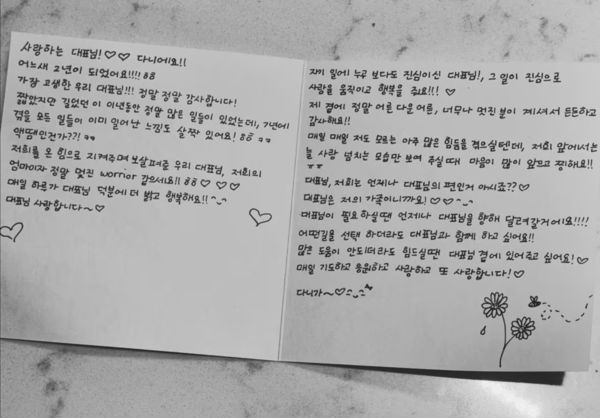 사랑하는 대표님!♡♡ 다니에요!!
어느새 2년이 되었어요!!!! ㅎㅎ
가장 고생한 우리 대표님!!! 정말 정말 감사합니다!
짧았지만 길었던 이 이년동안 정말 많은 일들이 있었는데, 7년에
겪을 모든 일들이 이미 일어난 느낌도 살짝 있어요! ㅎㅎ ㅋㅋ
액땜인건가??! ㅋㅋ
저희를 온 힘으로 지켜주며 보살펴준 우리 대표님, 저희의
엄마이자 정말 멋진 worrior 같으세요!! ㅎㅎ ♡ ♡ ♡
매일 하루가 대표님 덕분에 더 밝고 행복해요!! ^_^
대표님 사랑합니다~ ♡
자기 일에 누구 보다도 진심이신 대표님!, 그 일이 진심으로
사람을 움직이고 행복을 줘요!!! ♡
제 곁에 정말 어른 다운 어른, 너무나 멋진 분이 계셔서 든든하고
감사해요!!
매일 매일 저도 모르는 아주 많은 힘듦을 겪으실텐데, 저희 앞에서는
늘 사랑 넘치는 모습만 보여 주실 때 마음이 많이 아프고 찡해요!!
ㅠㅠ
대표님, 저희는 언제나 대표님의 편인거 아시죠?? ♡
대표님은 저의 가족이니까요! ♡ ♡ ^_^
대표님이 필요하실땐 언제나 대표님을 향해 달려갈거에요!!!!
어떤길을 선택 하더라도 대표님과 함께 하고 싶어요!!
많은 도움이 안되더라도 힘드실땐 대표님 곁에 있어주고 싶어요! ♡
매일 기도하고 응원하고 사랑하고 또 사랑합니다! ♡
다니가~♡